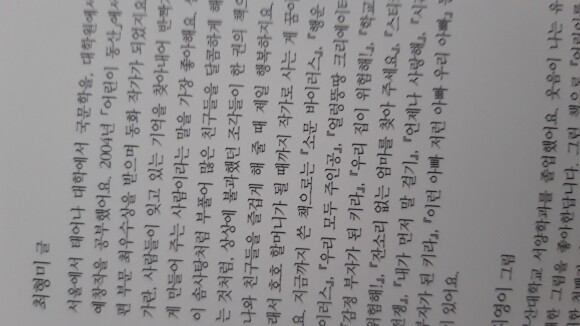 최형미 글
서울에서 태어나 대학에서 국문학을, 대학원에서
예창작을 공부했어요. 2004년 『어린이 동산』에서
편 부문 최우수상을 받으며 동화 작가가 되었지요
가란, 사람들이 잊고 있는 기억을 찾아내어 반짝
게 만들어 주는 사람이라는 말을 가장 좋아해요
이 솜사탕처럼 부풀어 많은 친구들을 달콤하게 해
는 것처럼, 상상에 불과했던 조각들이 한 권의 책으
나와 친구들을 즐겁게 해 줄 때 제일 행복하지요.
래서 호호 할머니가 될 때까지 작가로 사는 게 꿈이
요. 지금까지 쓴 책으로는 『소문 바이러스』, 『행운
이러스』, 『우리 모두 주인공』, 『엄렁뚱땅 크리에이터
『감정 부자가 된 키라』, 『우리 집이 위험해!』, 『학교
위험해!』, 『잔소리 없는 엄마를 찾아 주세요』, 『스티
전쟁』, 『내가 먼저 말 걸기』, 『언제나 사랑해』, 『시
부자가 된 키라』, 『이런 아빠 저런 아빠 우리 아빠』
이 있어요.
이영이 그림
산대학교 서양학과를 졸업했어요. 웃음이 나는 유
한 그림을 좋아한답니다. 그린 책으로 『어린이